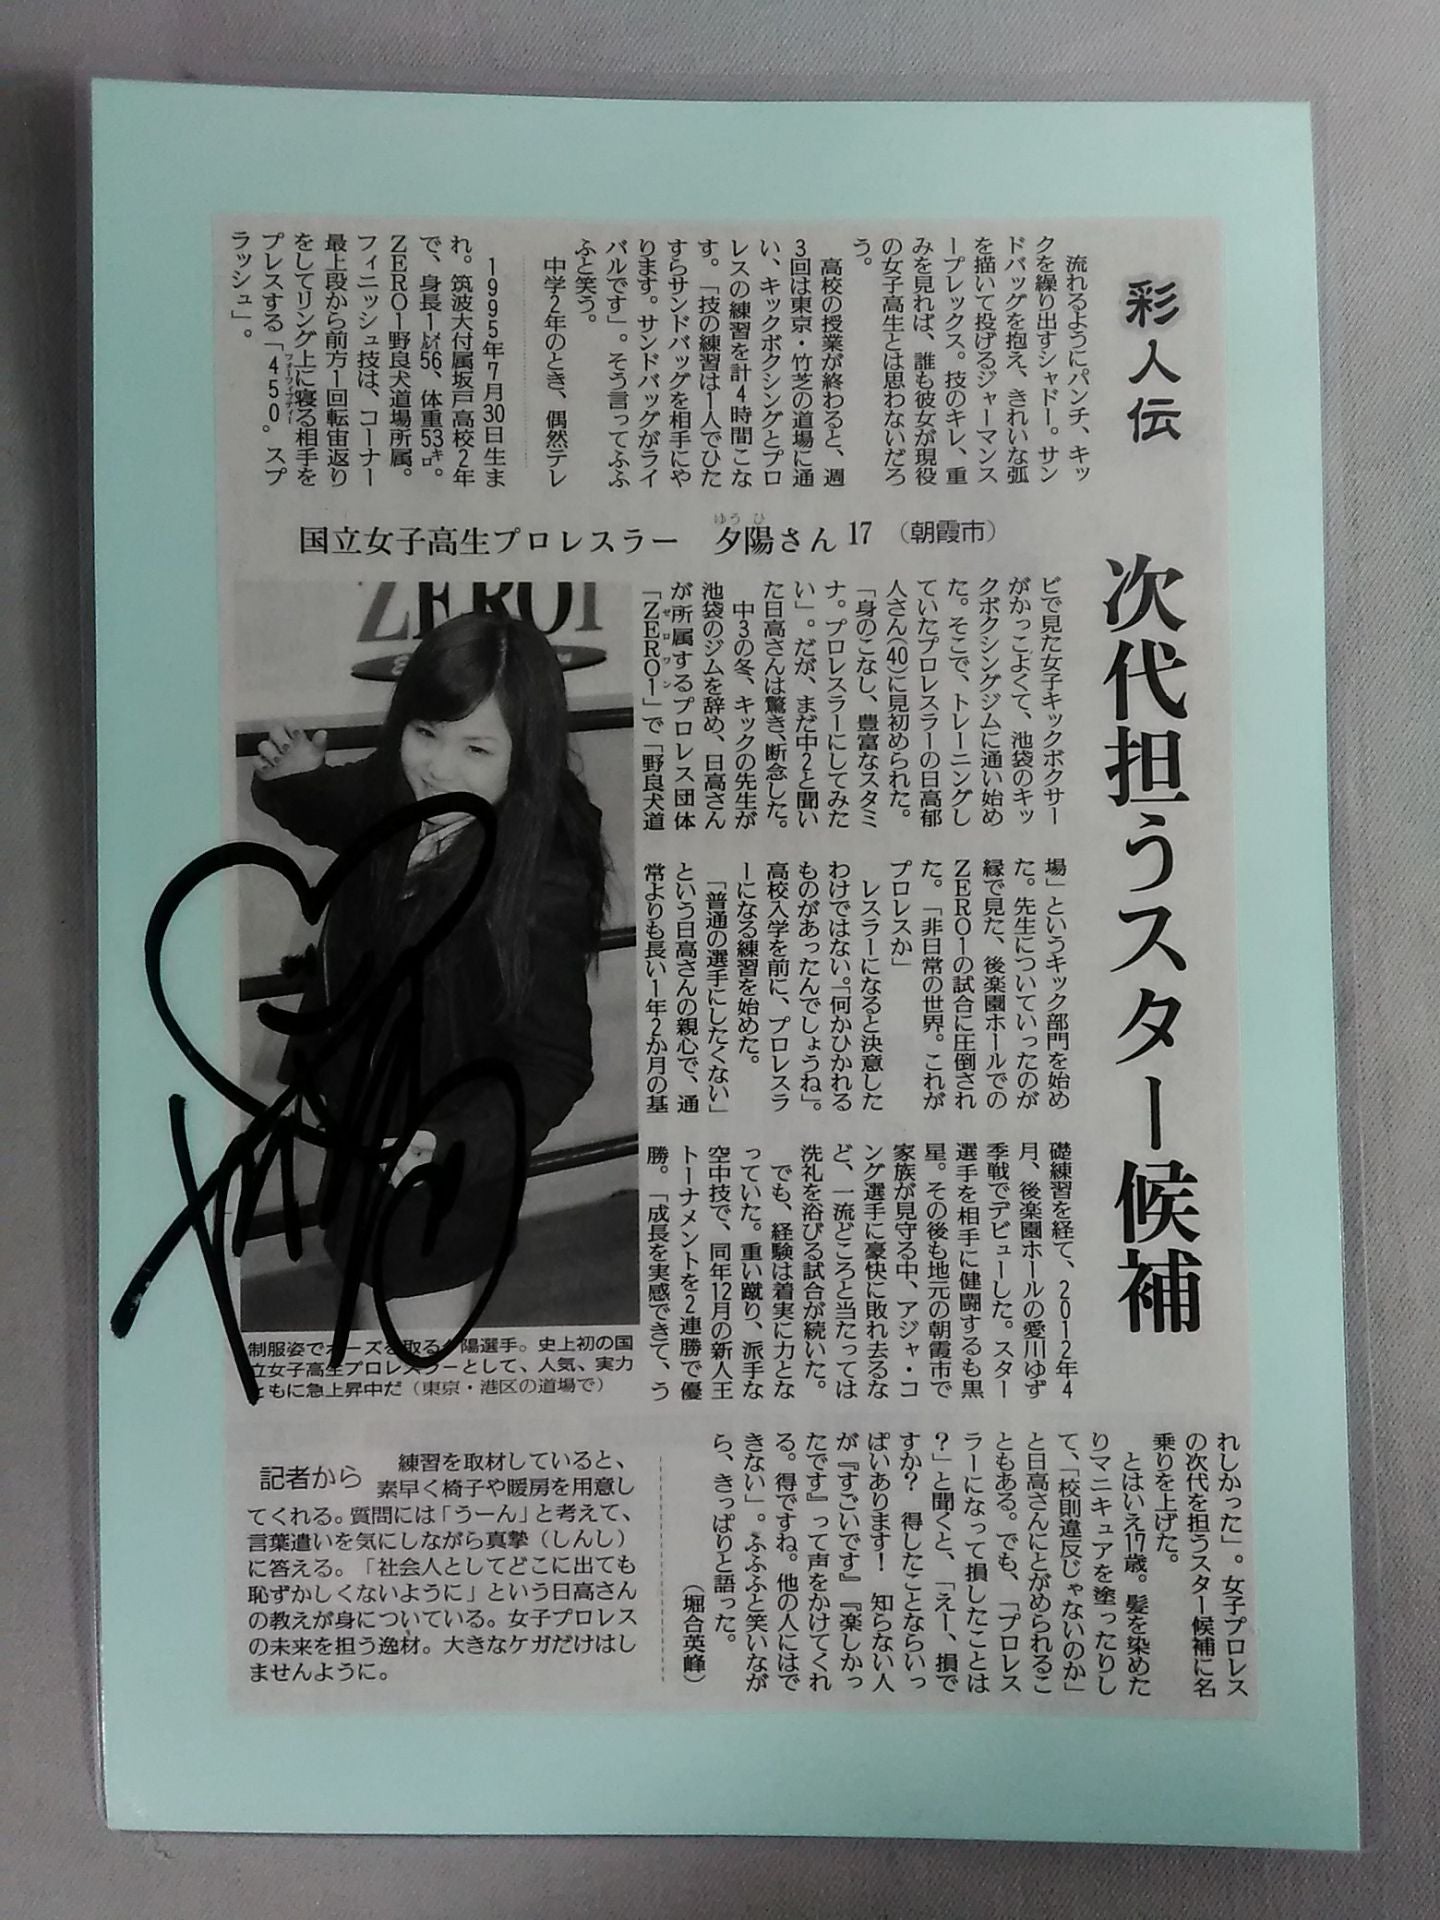 彩人伝
次代担うスター候補
国立女子高生プロレスラー　夕陽さん 17 （朝霞市）
ゆうひ
流れるようにパンチ、キッ
クを繰り出すシャドー。サン
ドバッグを抱え、きれいな弧
を描いて投げるジャーマンス
ープレックス。技のキレ、重
みを見れば、誰も彼女が現役
の女子高生とは思わないだろ
う。
高校の授業が終わると、週
3回は東京・竹芝の道場に通
い、キックボクシングとプロ
レスの練習を計4時間こな
す。「技の練習は1人でひた
すらサンドバッグを相手にや
ります。サンドバッグがライ
バルです」。そう言ってふふ
ふと笑う。
中学2年のとき、偶然テレ
ビで見た女子キックボクサー
がかっこよくて、池袋のキッ
クボクシングジムに通い始め
た。そこで、トレーニングし
ていたプロレスラーの日高郁
人さん(40)に見初められた。
「身のこなし、豊富なスタミ
ナ。プロレスラーにしてみた
い」。だが、まだ中2と聞い
た日高さんは驚き、断念した。
中3の冬、キックの先生が
池袋のジムを辞め、日高さん
が所属するプロレス団体
「ZERO1」で「野良犬道
ゼロワン
場」というキック部門を始め
た。先生についていったのが
縁で見た、後楽園ホールでの
ZERO1の試合に圧倒され
た。「非日常の世界。これが
プロレスか」
レスラーになると決意した
わけではない。「何かひかれる
ものがあったんでしょうね」。
高校入学を前に、プロレスラ
ーになる練習を始めた。
「普通の選手にしたくない」
という日高さんの親心で、通
常よりも長い1年2か月の基
礎練習を経て、2012年4
月、後楽園ホールの愛川ゆず
季戦でデビューした。スター
選手を相手に健闘するも黒
星。その後も地元の朝霞市で
家族が見守る中、アジャ・コ
ング選手に豪快に敗れ去るな
ど、一流どころと当たっては
洗礼を浴びる試合が続いた。
でも、経験は着実に力とな
っていた。重い蹴り、派手な
空中技で、同年12月の新人王
トーナメントを2連勝で優
勝。「成長を実感できて、う
れしかった」。女子プロレス
の次代を担うスター候補に名
乗りを上げた。
とはいえ17歳。髪を染めた
りマニキュアを塗ったりし
て、「校則違反じゃないのか」
と日高さんにとがめられるこ
ともある。でも、「プロレス
ラーになって損したことは
？」と聞くと、「えー、損で
すか？　得したことならいっ
ぱいあります！　知らない人
が『すごいです』『楽しかっ
たです』って声をかけてくれ
る。得ですね。他の人にはで
きない」。ふふふと笑いなが
ら、きっぱりと語った。
（堀合英峰）
1995年7月30日生ま
れ。筑波大付属坂戸高校2年
で、身長1㍍56、体重53㌔。
ZERO1野良犬道場所属。
フィニッシュ技は、コーナー
最上段から前方1回転宙返り
をしてリング上に寝る相手を
プレスする「450°スプ
フォーフィフティー
ラッシュ」。
ZERO1
制服姿でポーズを取る夕陽選手。史上初の国
立女子高生プロレスラーとして、人気、実力
ともに急上昇中だ（東京・港区の道場で）
記者から
練習を取材していると、
素早く椅子や暖房を用意し
てくれる。質問には「うーん」と考えて、
言葉遣いを気にしながら真摯（しんし）
に答える。「社会人としてどこに出ても
恥ずかしくないように」という日高さん
の教えが身についている。女子プロレス
の未来を担う逸材。大きなケガだけはし
ませんように。